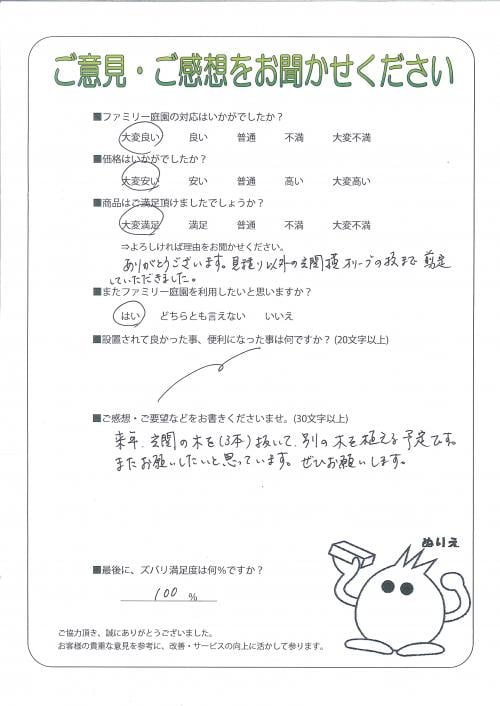 ご意見・ご感想をお聞かせください
■ファミリー庭園の対応はいかがでしたか？
大変良い 良い 普通 不満 大変不満
■価格はいかがでしたか？
大変安い 安い 普通 高い 大変高い
■商品はご満足頂けましたでしょうか？
大変満足 満足 普通 不満 大変不満
⇒よろしければ理由をお聞かせください。
ありがとうございます。見積り以外の玄関横オリーブの枝まで 剪定
していただきました。
■またファミリー庭園を利用したいと思いますか？
はい どちらとも言えない いいえ
■設置されて良かった事、便利になった事は何ですか？(20文字以上)
■ご感想・ご要望などをお書きくださいませ。(30文字以上)
来年、玄関の木を(3本)抜いて、別の木を植える予定です。
またお願いしたいと思っています。ぜひお願いします。
ぬりえ
■最後に、ズバリ満足度は何％ですか？
100 %
ご協力頂き、誠にありがとうございました。
お客様の貴重な意見を参考に、改善・サービスの向上に活かして参ります。